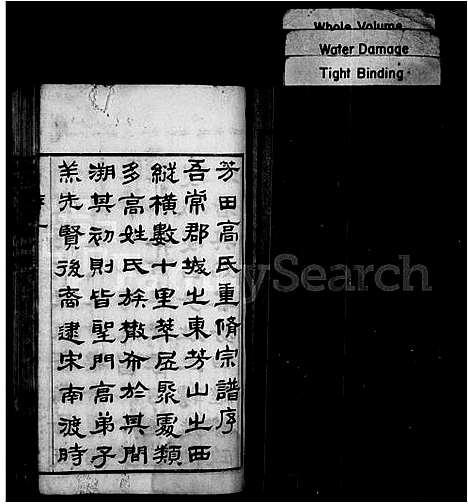 Whole Volume
Water Damage
Tight Binding
芳田高氏重脩宗譜序
吾常郡城之東芳山之西
縱橫數十里萃居眾處類
多高姓氏族散布於其間
溯其初則皆聖門高弟子
羔先賢後裔逮宋南渡時
FamilySearch